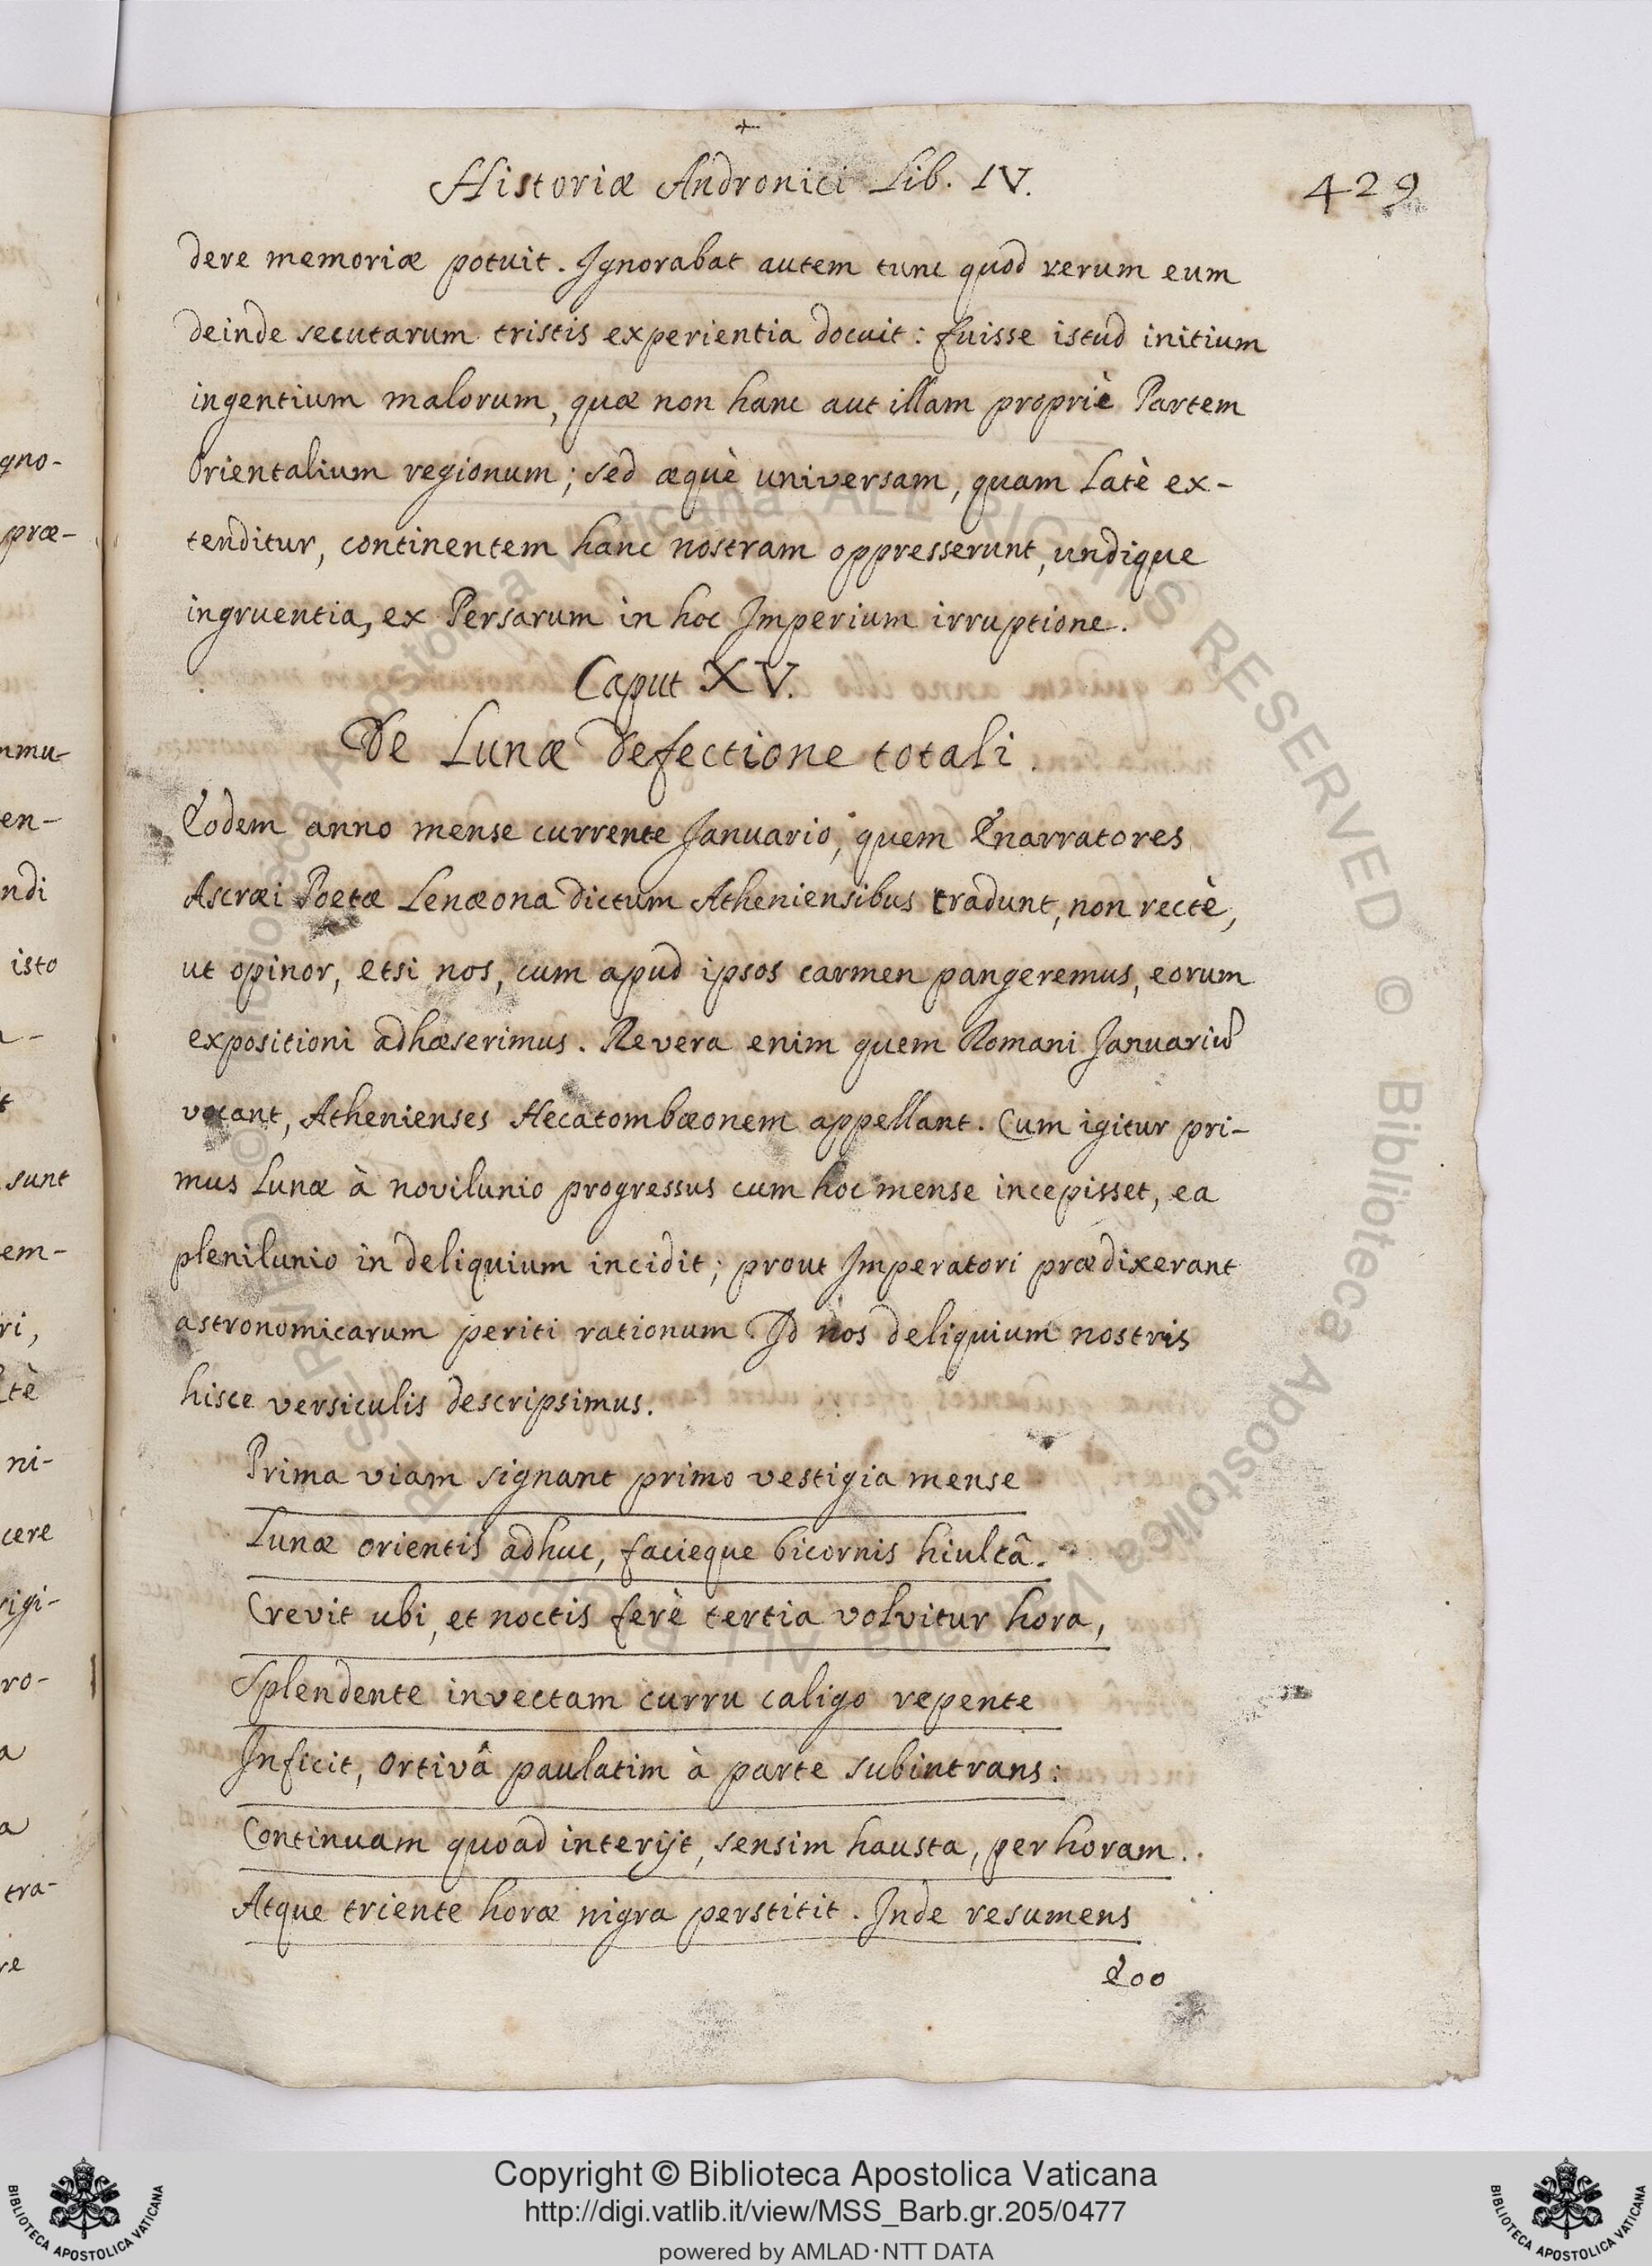 Historiæ Andronici Lib. IV.
429
dere memoriæ potuit. Ignorabat autem tunc quod rerum eum
deinde secutarum tristis experientia docuit: fuisse istud initium
ingentium malorum, quæ non hanc aut illam propriè Partem
Orientalium regionum; sed æquè universam, quam Latè ex-
tenditur, continentem hanc nostram oppresserunt, undique
ingruentia, ex Persarum in hoc Imperium irruptione.
Caput XV.
De Lunæ defectione totali.
Eodem anno mense currente Januario, quem Enarratores
Ascræi Poetæ Lenæona dictum Atheniensibus tradunt, non rectè,
ut opinor, etsi nos, cum apud ipsos carmen pangeremus, eorum
expositioni adhæserimus. Revera enim quem Romani Januariũ
vocant, Athenienses Hecatombæonem appellant. Cum igitur pri-
mus Lunæ à novilunio progressus cum hoc mense incepisset, ea
plenilunio in deliquium incidit; prout Imperatori prædixerant
astronomicarum periti rationum. Id nos deliquium nostris
hisce versiculis descripsimus.
Prima viam signant primo vestigia mense
Lunæ orientis adhuc, facieque bicornis hiulcâ.
Crevit ubi, et noctis ferè tertia volvitur hora,
Splendente invectam curru caligo repente
Inficit, ortivâ paulatim à parte subintrans:
Continuam quoad interijt, sensim hausta, per horam.
Atque triente horæ nigra perstitit. Inde resumens
Eoo
gno-
præ-
mmu-
en-
ndi
isto
sunt
em-
ri,
tè
ni-
cere
rigi-
ro-
a
a
tra-
re
© Biblioteca Apostolica Vaticana ALL RIGHTS RESERVED © Biblioteca Apostolica Vaticana ALL RIGHTS RESERVED
Copyright © Biblioteca Apostolica Vaticana
http://digi.vatlib.it/view/MSS_Barb.gr.205/0477
powered by AMLAD·NTT DATA
BIBLIOTECA APOSTOLICA VATICANA
BIBLIOTECA APOSTOLICA VATICANA